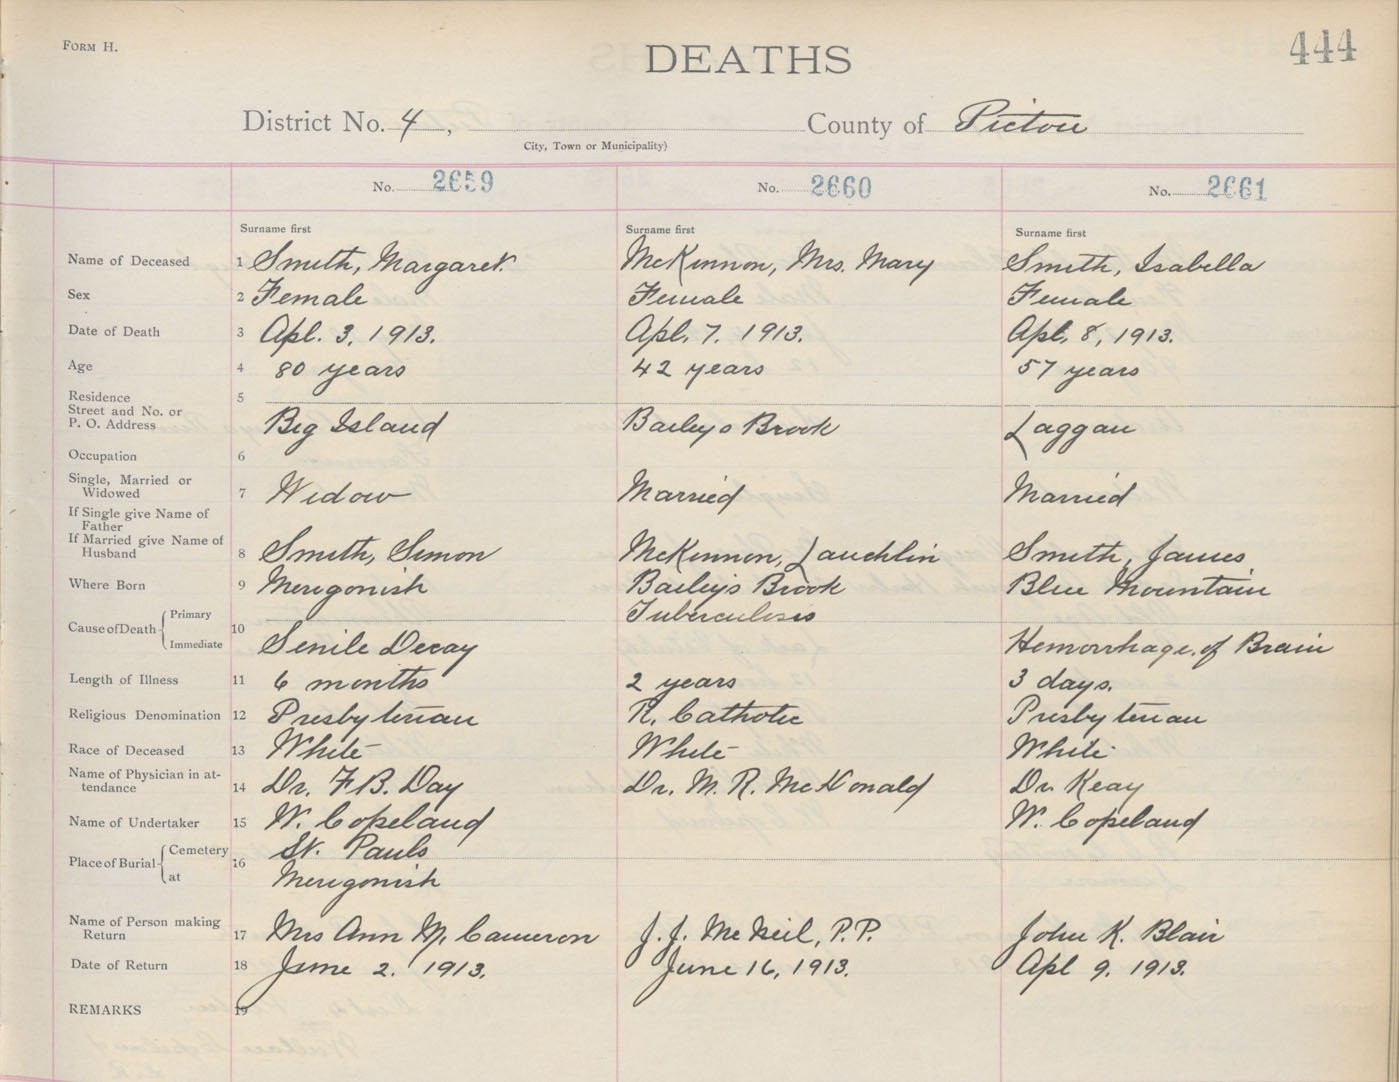 FORM H.
DEATHS
444
District No. 4, County of Pictou
City, Town or Municipality)
No. 2659 No. 2660 No. 2661
Surname first Surname first Surname first
Name of Deceased 1 Smith, Margaret. McKinnon, Mrs. Mary Smith, Isabella
Sex 2 Female Female Female
Date of Death 3 Apl. 3, 1913. Apl, 7. 1913. Apl, 8, 1913.
Age 4 80 years 42 years 57 years
Residence 5
Street and No. or
P. O. Address Big Island Baileys Brook Laggan
Occupation 6
Single, Married or
Widowed 7 Widow Married Married
If Single give Name of
Father
If Married give Name of
Husband 8 Smith, Simon McKinnon, Lauchlin Smith, James
Where Born 9 Merigonish Bailey's Brook Blue Mountain
Cause of Death Primary 10 Tuberculosis
Immediate Senile Decay Hemorrhage of Brain
Length of Illness 11 6 months 2 years 3 days.
Religious Denomination 12 Presbyterian R. Catholic Presbyterian
Race of Deceased 13 White White White
Name of Physician in at-
tendance 14 Dr. F B. Day Dr. M. R. McDonald Dr. Keay
Name of Undertaker 15 W. Copeland W. Copeland
Place of Burial Cemetery 16 St. Pauls
at Merigonish
Name of Person making
Return 17 Mrs Ann M. Cameron J. J. McNeil, P.P. John K. Blair
Date of Return 18 June 2. 1913. June 16, 1913. Apl 9. 1913.
REMARKS 19